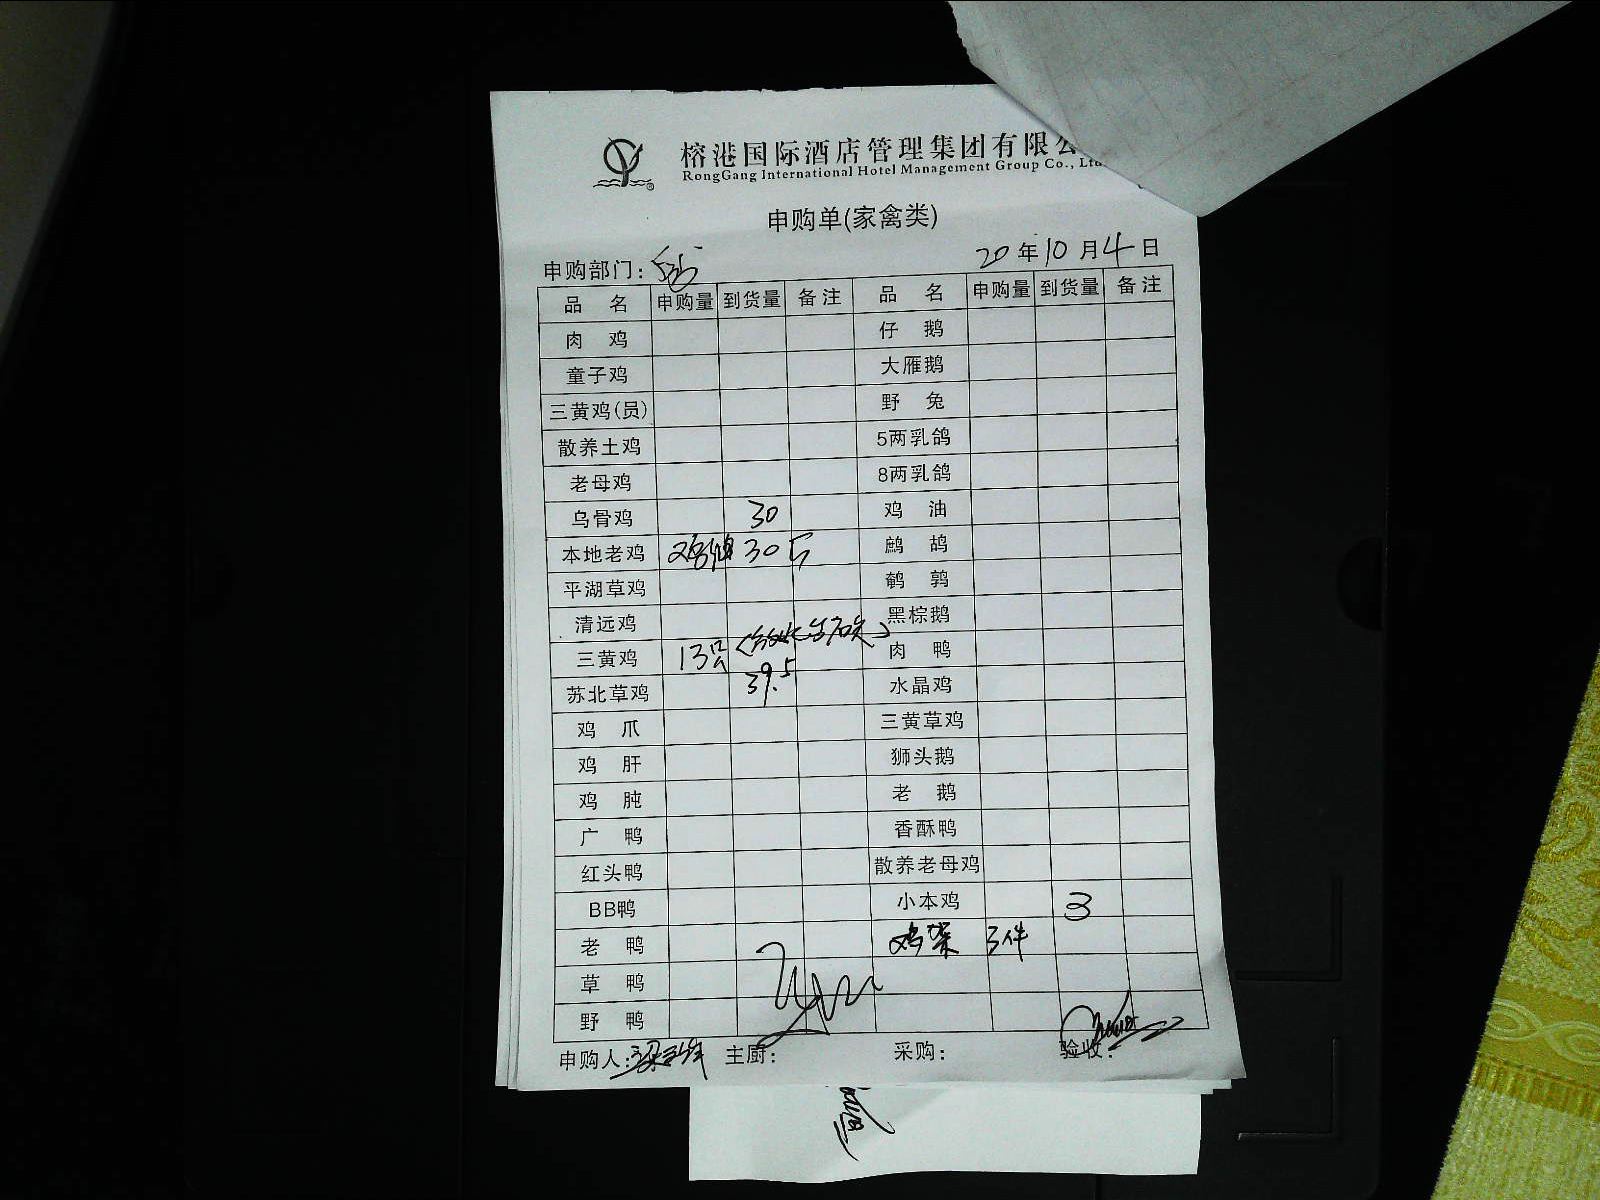 榕港国际酒店管理集团有限公
RongGang International Hotel Management Group Co., Ltd
申购单(家禽类)
申购部门： 20年10月4日
品名 申购量 到货量 备注 品名 申购量 到货量 备注
肉鸡 仔鹅
童子鸡 大雁鹅
三黄鸡(员) 野兔
散养土鸡 5两乳鸽
老母鸡 8两乳鸽
乌骨鸡 30 鸡油
本地老鸡 鸡油 30斤 鹧鸪
平湖草鸡 鹌鹑
清远鸡 黑棕鹅
三黄鸡 13只 肉鸭
苏北草鸡 39.5 水晶鸡
鸡爪 三黄草鸡
鸡肝 狮头鹅
鸡肫 老鹅
广鸭 香酥鸭
红头鸭 散养老母鸡
BB鸭 小本鸡 3
老鸭 鸡架 3件
草鸭
野鸭
申购人： 主厨： 采购： 验收：